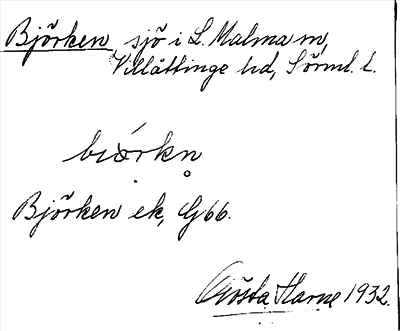 Björken sjö i L. Malma sn,
Villåttinge hd, Sörml. l.
biǿrkn̥
Björken ek, G66.
Gösta Harne 1932.